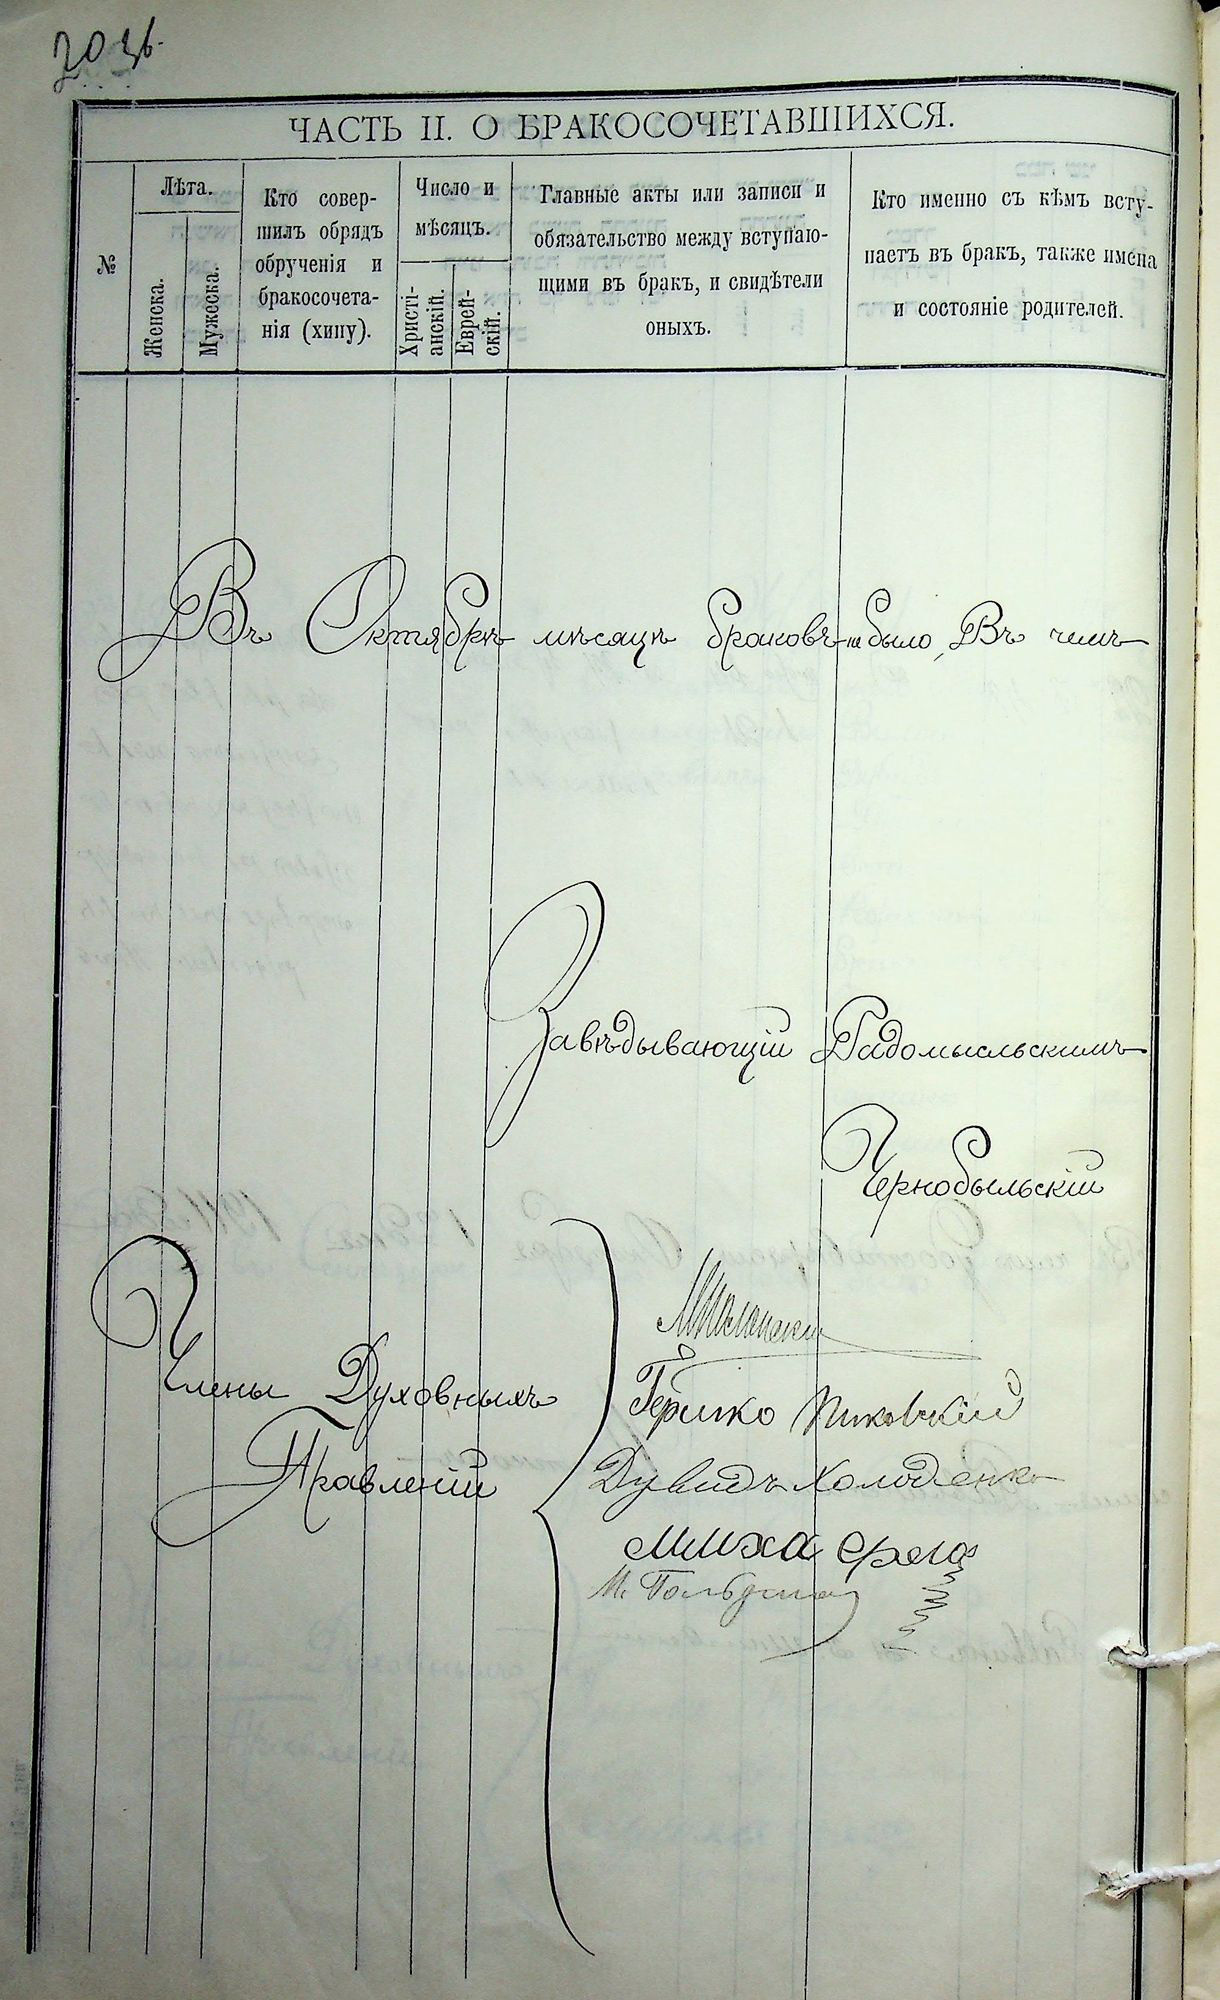 203б.
ЧАСТЬ II. О БРАКОСОЧЕТАВШИХСЯ.
№
Лѣта.
Женска.
Мужеска.
Кто совер-
шилъ обрядъ
обрученія и
бракосочета-
нія (хипу).
Число и
мѣсяцъ.
Христі-
анскій.
Еврей-
скій.
Главные акты или записи и
обязательство между вступаю-
щими въ бракъ, и свидѣтели
оныхъ.
Кто именно съ кѣмъ всту-
паетъ въ бракъ, также имена
и состояніе родителей.
Въ Октябрѣ мѣсяцѣ браковъ не было, Въ чемъ
Завѣдывающій Радомысльскимъ
Чернобыльскій
Члены Духовныхъ
Правленій
Гершко
Дувидъ Холоденко